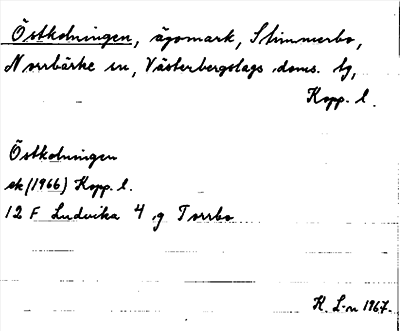 Östkolningen, ägomark, Stimmerbo,
Norrbärke sn, Västerbergslags doms. tg,
Kopp. l.
Östkolningen
ek (1966) Kopp. l.
12 F Ludvika 4 g Torrbo
K. L-n 1967.